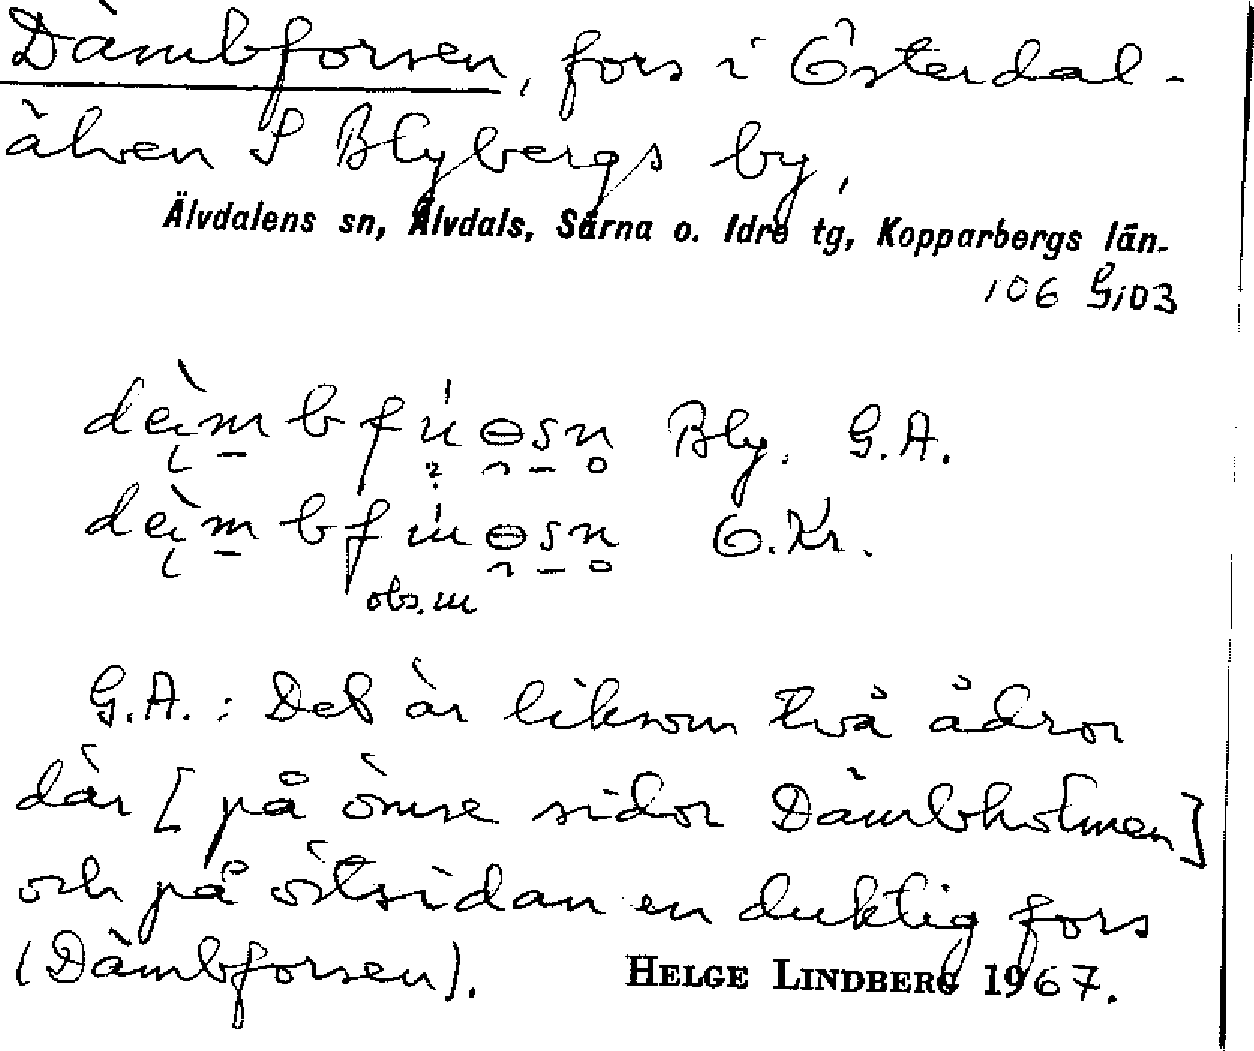 Dämbforsen, fors i Österdal-
älven S Blybergs by,
Älvdalens sn, Älvdals, Särna o. Idre tg, Kopparbergs län.
106 G103
Bly. G.A.
O.Kr.
obs. ɯ
G.A.: Det är liksom två ådror
där [på ömse sidor Dämbholmen]
och på östsidan en duktig fors
(Dämbforsen). HELGE LINDBERG 1967.